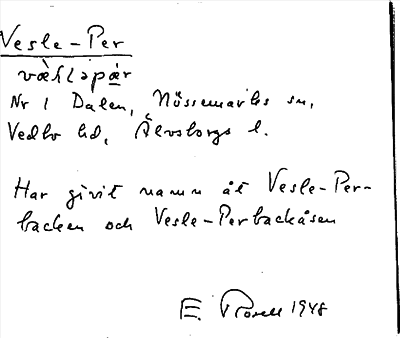 Vesle-Per
Nr 1 Dalen, Nössemarks sn,
Vedbo hd, Älvsborgs l.
Har givit namn åt Vesle-Per-
backen och Vesle-Perbackåsen
E. 1948